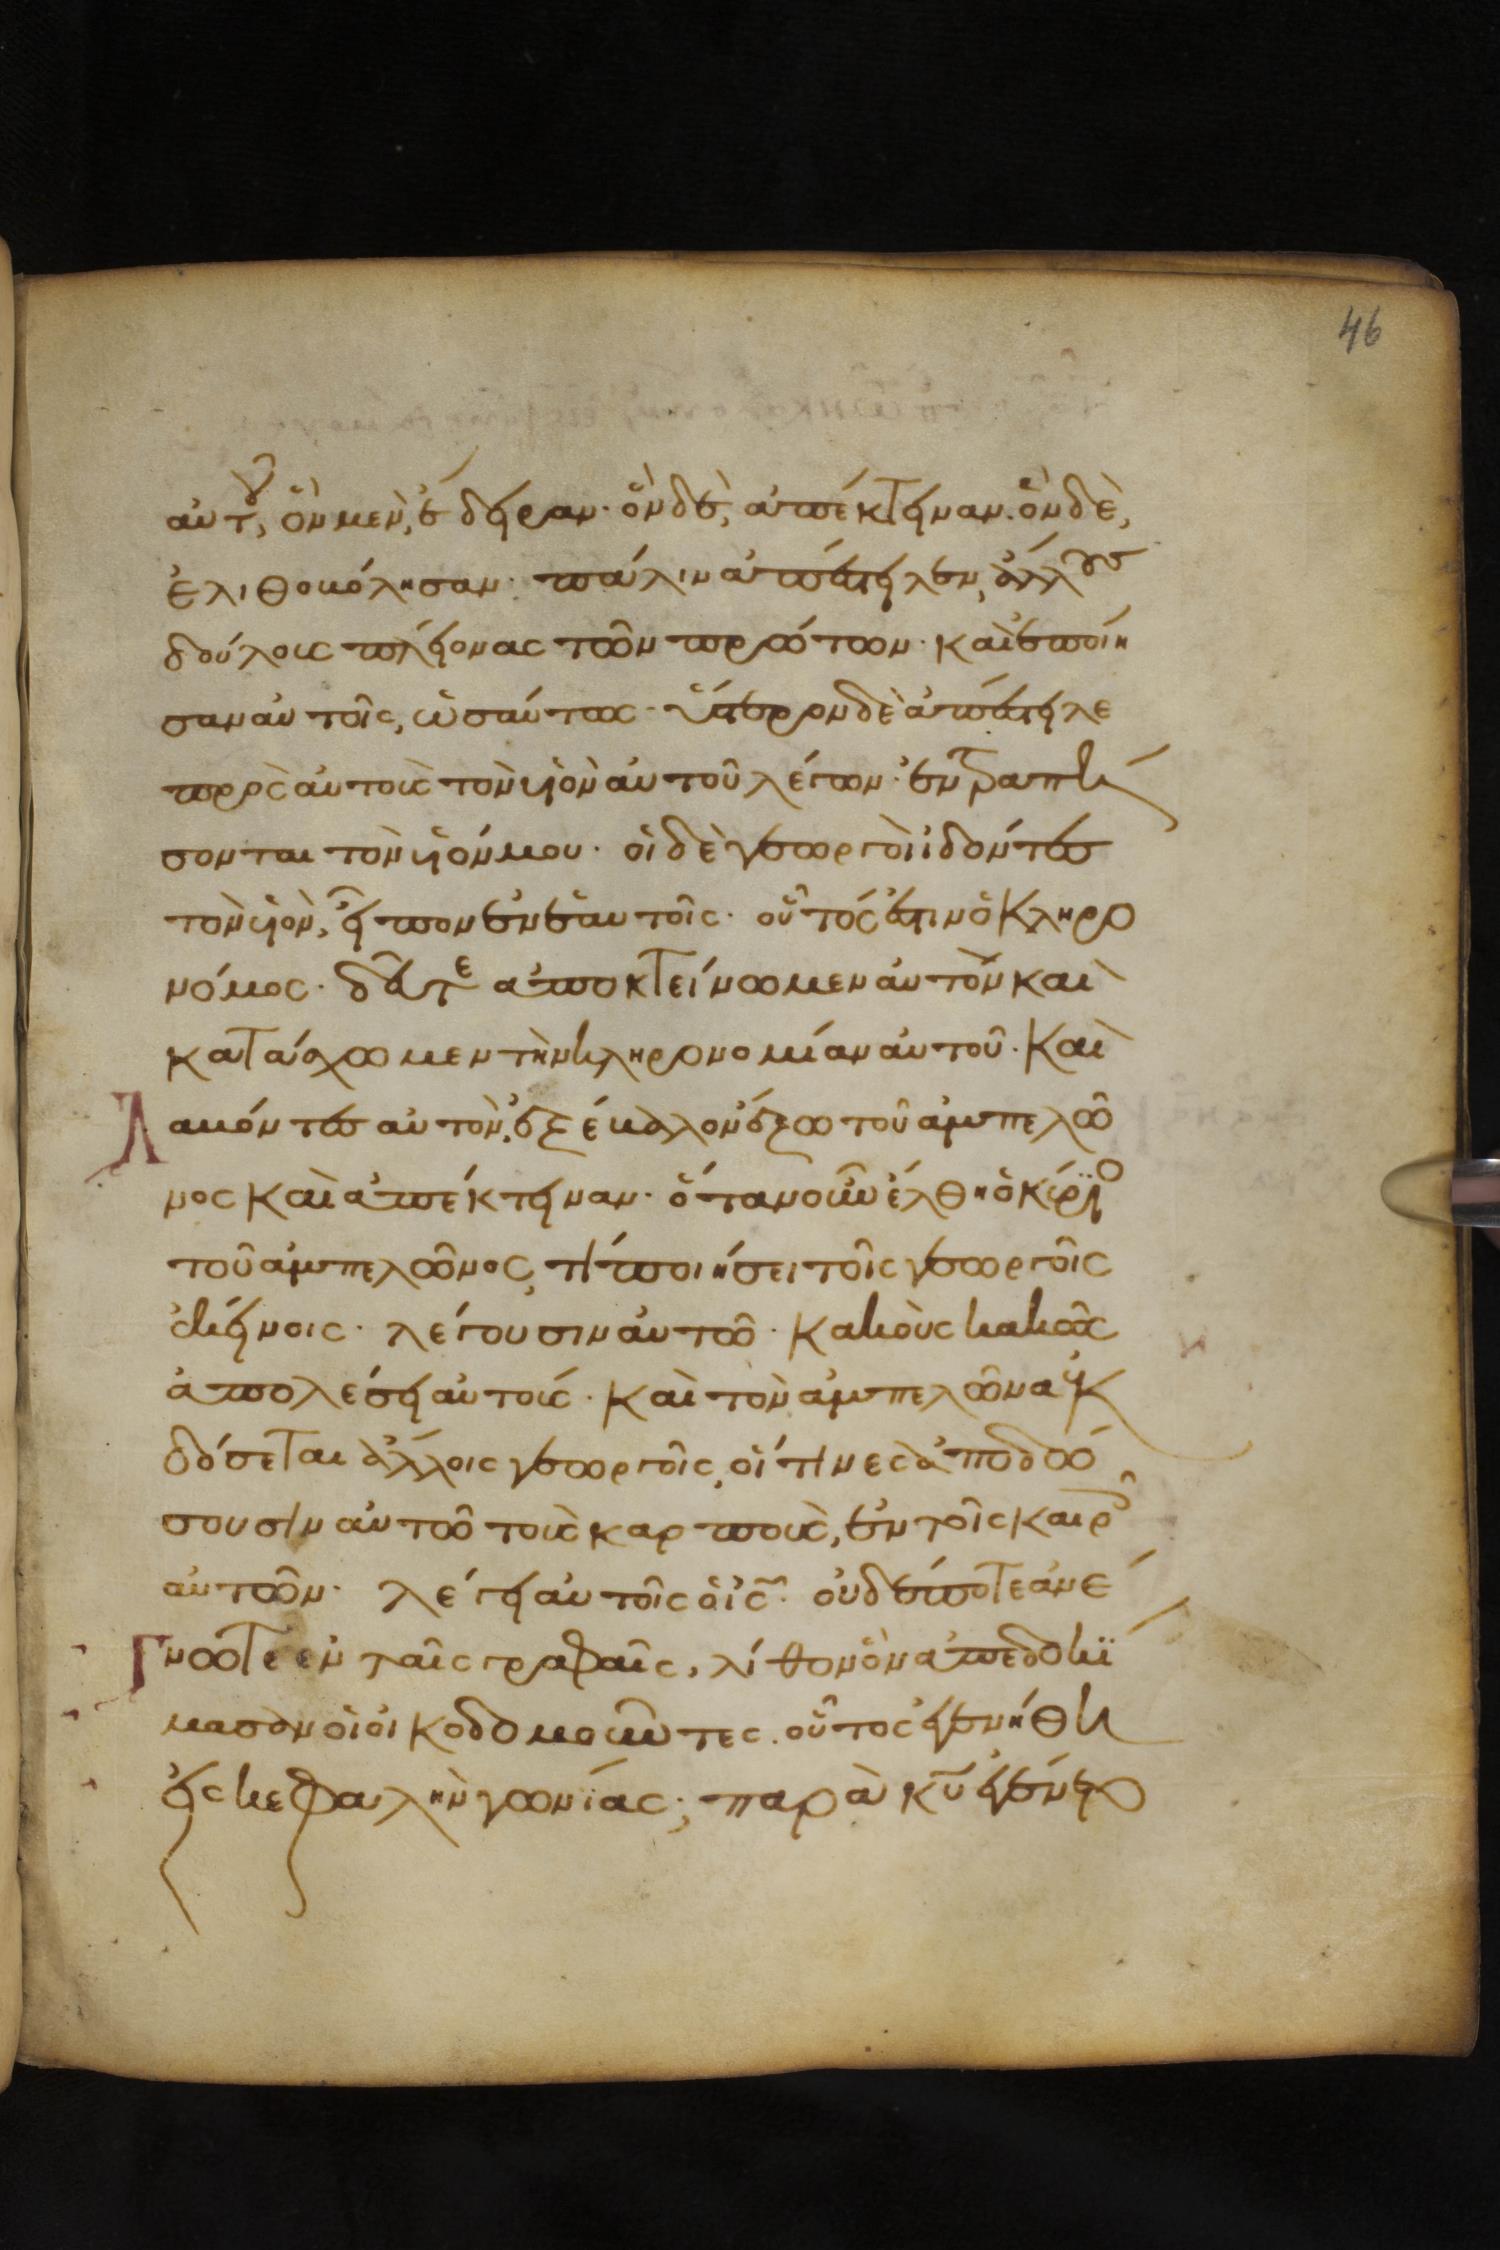 46
αὐτοῦ, ὃν μὲν, ἔδειραν· ὃν δὲ, ἀπέκτειναν· ὃν δὲ,
ἐλιθοβόλησαν· πάλιν ἀπέστειλεν, ἄλλους
δούλους πλείονας τῶν πρώτων· καὶ ἐποίη
σαν αὐτοῖς, ὡσαύτως· ὕστερον δὲ ἀπέστειλε
πρὸς αὐτοὺς τὸν υἱὸν αὐτοῦ λέγων· ἐντραπή
σονται τὸν υἱόν μου· οἱ δὲ γεωργοὶ ἰδόντες
τὸν υἱὸν, εἶπον ἐν ἑαυτοῖς· οὗτός ἐστιν ὁ κληρο
νόμος· δεῦτε ἀποκτείνωμεν αὐτὸν καὶ
κατάσχωμεν τὴν κληρονομίαν αὐτοῦ· Καὶ
Λαβόντες αὐτὸν, ἐξέβαλον ἔξω τοῦ ἀμπελῶ
νος καὶ ἀπέκτειναν· ὅταν οὖν ἔλθη ὁ κύριος
τοῦ ἀμπελῶνος, τί ποιήσει τοῖς γεωργοῖς
ἐκείνοις· λέγουσιν αὐτῶ· Κακοὺς κακῶς
ἀπολέσει αὐτούς· Καὶ τὸν ἀμπελῶνα ἐκ
δόσεται ἄλλοις γεωργοῖς, οἵτινες ἀποδώ
σουσιν αὐτῶ τοὺς καρποὺς, ἐν τοῖς καιροῖς
αὐτῶν· λέγει αὐτοῖς ὁ ἰς̅· οὐδέποτε ἀνέ
Γνωτε ἐν ταῖς γραφαῖς, λίθον ὃν ἀπεδοκί
μασαν οἱ οἰκοδομοῦντες· οὗτος ἐγενήθη
εἰς κεφαλὴν γωνίας; παρὰ κυ̅ ἐγένετο